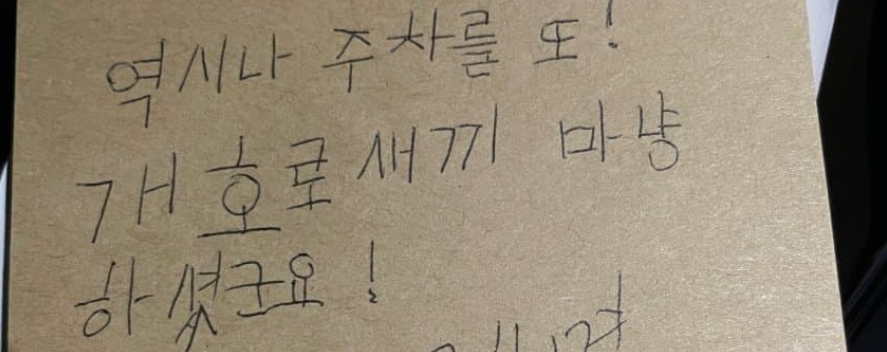 역시나 주차를 또!
개호로새끼 마냥
하셨군요!